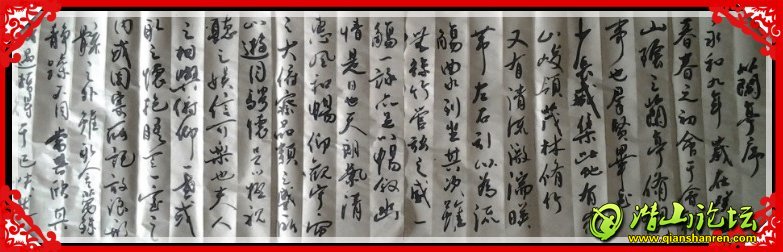 蘭亭序
永和九年歲在
暮春之初會于會
山陰之蘭亭脩
事也群賢畢至
少長咸集此地有
山峻領茂林脩竹
又有清流激湍映
帶左右引以為流
觴曲水列坐其次雖
無絲竹管弦之盛一
觴一詠亦足以暢敘幽
情是日也天朗氣清
惠風和暢仰觀宇宙
之大俯察品類之盛所
以遊目騁懷足以極視
聽之娛信可樂也夫人
之相與俯仰一世或
取之懷抱晤言一室之
內或因寄所託放浪形
骸之外雖取舍萬殊
靜躁不同當其欣其
得于己快然
潜山论坛
www.qianshanren.com